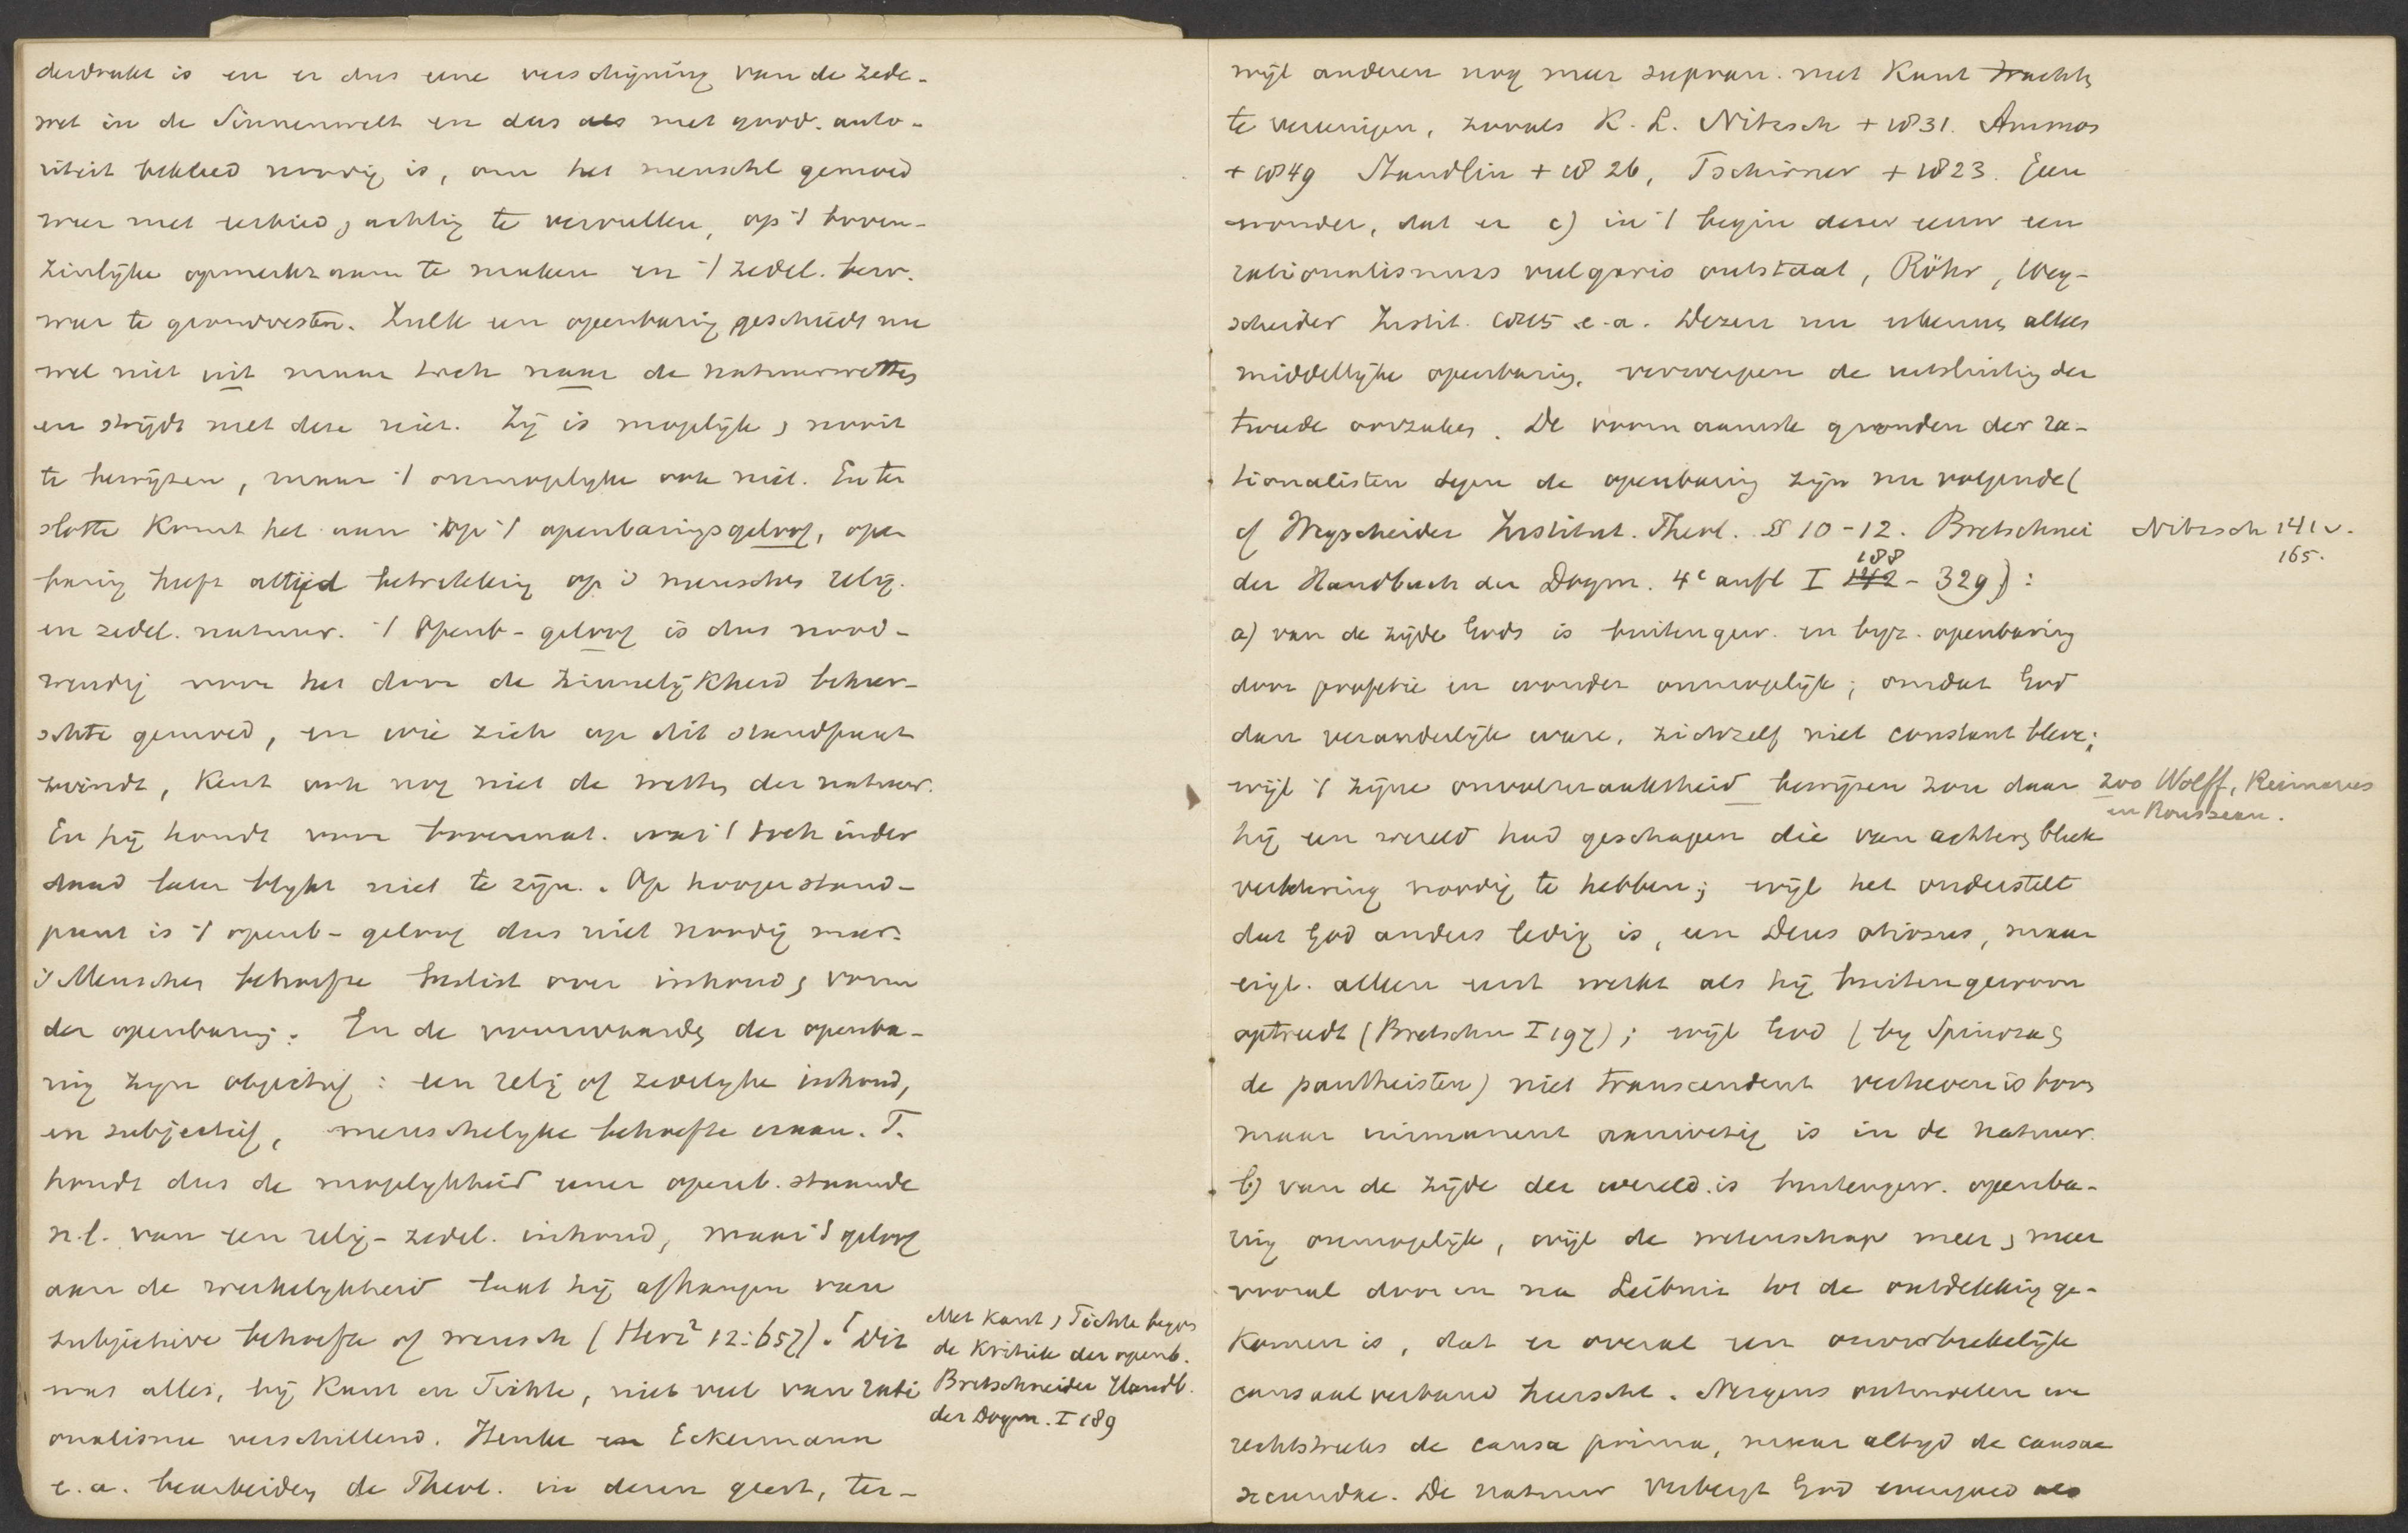 derdrukt is en er dus eene verschijning van de zede-
wet in de Sinnenwelt en dus als met godd. auto-
riteit bekleed noodig is, om het menschl gemoed
weer met eerbied, achting te vervullen, op 't boven-
zinlijke opmerkzaam te maken en 't zedel. bew.
weer te grondvesten. Zulk een openbaring geschiedt nu
wel niet uit maar toch naar de natuurwetten
en strijdt met deze niet. Zij is mogelijk, nooit
te bewijzen, maar 't onmogelyke ook niet. En ten
slotte komt het aan op 't openbaringsgeloof, open
baring heeft altijd betrekking op 's menschen relig.
en zedel. natuur. 't Openb-geloof is dus nood-
wendig voor het door de zinnelijkheid beheer-
schte gemoed, en wie zich op dit standpunt
bevindt, kent ook nog niet de wetten der natuur.
En hij houdt voor bovennat. wat 't toch inder
daad later blijkt niet te zijn. Op hooger stand-
punt is 't openb-geloof dus niet noodig meer.
's Menschen behoefte beslist over inhoud, vorm
der openbaring. En de voorwaarden der openba-
ring zijn objectief: een relig of zedelyke inhoud,
en subjectief, menschelyke behoefte eraan. F.
houdt dus de mogelykheid eener openb. staande
n.l. van een relig-zedel. inhoud, maar 't geloof
aan de werkelykheid laat hij afhangen van
subjectieve behoefte of wensch (Herz² 12:657). Dit
was alles, bij Kant en Fichte, niet veel van rati
onalisme verschillend. Henke en Eckermann
e.a. bearbeiden de Theol. in dezen geest, ter-
Met Kant, Fichte begon
de Kritiek der openb.
Bretschneider Handb.
der Dogm. I 189
wijl anderen nog meer supran. met Kant trachten
te vereenigen, zooals K. L. Nitzsch + 1831. Ammon
+ 1849 Staudlin + 1826, Tschirner + 1823. Geen
wonder, dat er c) in 't begin dezer eeuw een
rationalismus vulgaris ontstaat, Röhr, Weg-
scheider Instit. 1815 e.a. Dezen nu erkennen alleen
middellijke openbaring, verwerpen de uitsluiting der
tweede oorzaken. De voornaamste gronden der ra-
tionalisten tegen de openbaring zijn nu volgende (
cf Wegscheider Institut. Theol. §§ 10-12. Bretschnei
der Handbuch der Dogm. 4e aufl I 188 - 329):
Nitzsch 141 v.
165.
a) van de zijde Gods is buitengew. en byz. openbaring
door profetie en wonder onmogelijk; omdat God
dan veranderlijk ware, zichzelf niet constant bleve;
wijl 't zijne onvolmaaktheid bewijzen zou daar
hij een wereld had geschapen die van achteren bleek
verbetering noodig te hebben; wijl het onderstelt
dat God anders ledig is, een Deus otiosus, maar
eigl. alleen eerst werkt als hij buitengewoon
optreedt (Bretschn I 197); wijl God (by Spinoza,
de pantheisten) niet transcendent verheven is boven
maar immanent aanwezig is in de natuur.
zoo Wolff, Reimarus
en Rousseau.
b) van de zijde der wereld is buitengew. openba-
ring onmogelijk, wijl de wetenschap meer, meer
vooral door en na Leibniz tot de ontdekking ge-
komen is, dat er overal een onverbrekelijk
causaalverband heerscht. Nergens ontwaren we
rechtstreeks de causa prima, maar altyd de causae
secundae. De natuur verbergt God evengoed als